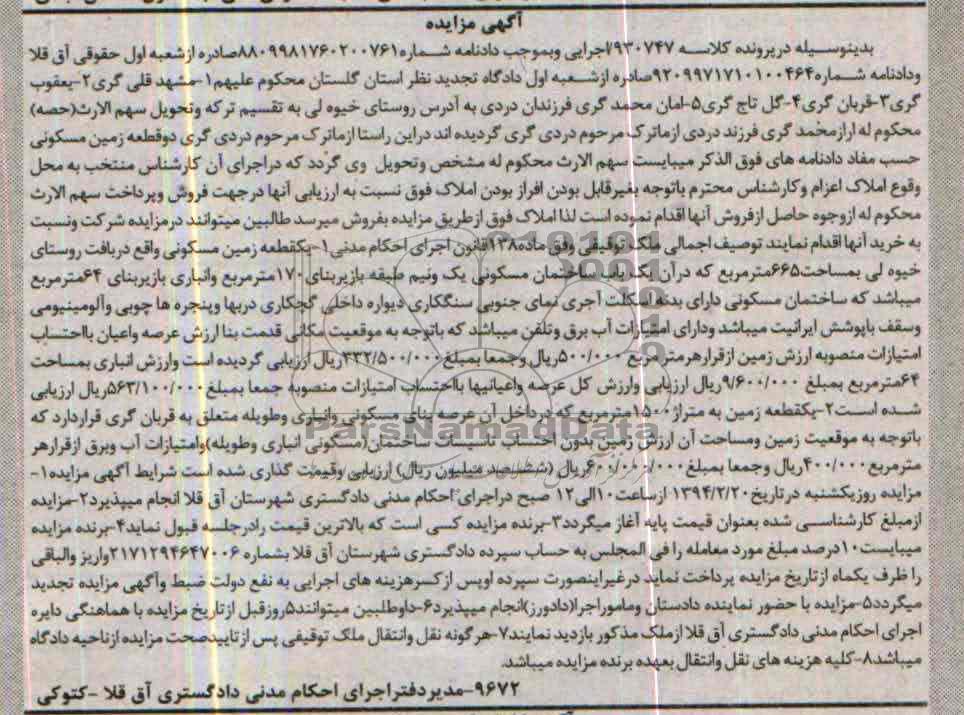 آگهی مزایده
بدینوسیله درپرونده کلاسه ۹۳۰۷۴۷اجرایی وبموجب دادنامه شماره۸۸۰۹۹۸۱۷۶۰۲۰۰۷۶۱صادره ازشعبه اول حقوقی آق قلا
ودادنامه شماره۹۲۰۹۹۷۱۷۱۰۱۰۰۴۶۴صادره ازشعبه اول دادگاه تجدید نظر استان گلستان محکوم علیهم۱-مشهد قلی گری۲-یعقوب
گری۳-قربان گری۴-گل تاج گری۵-امان محمد گری فرزندان دردی به آدرس روستای خیوه لی به تقسیم ترکه وتحویل سهم الارث(حصه)
محکوم له ارازمحمد گری فرزند دردی ازماترک مرحوم دردی گری گردیده اند دراین راستا ازماترک مرحوم دردی گری دوقطعه زمین مسکونی
حسب مفاد دادنامه های فوق الذکر میبایست سهم الارث محکوم له مشخص وتحویل وی گردد که دراجرای آن کارشناس منتخب به محل
وقوع املاک اعزام وکارشناس محترم باتوجه بغیرقابل بودن افراز بودن املاک فوق نسبت به ارزیابی آنها درجهت فروش وپرداخت سهم الارث
محکوم له ازوجوه حاصل ازفروش آنها اقدام نموده است لذا املاک فوق ازطریق مزایده بفروش میرسد طالبین میتوانند درمزایده شرکت ونسبت
به خرید آنها اقدام نمایند توصیف اجمالی ملک توقیفی وفق ماده۱۳۸قانون اجرای احکام مدنی۱-یکقطعه زمین مسکونی واقع دربافت روستای
خیوه لی بمساحت۶۶۵مترمربع که درآن یک باب ساختمان مسکونی یک ونیم طبقه بازیربنای۱۷۰مترمربع وانباری بازیربنای ۶۴مترمربع
میباشد که ساختمان مسکونی دارای بدنه اسکلت آجری نمای جنوبی سنگکاری دیواره داخلی گچکاری دربها وپنجره ها چوبی وآلومینیومی
وسقف باپوشش ایرانیت میباشد ودارای امتیازات آب برق وتلفن میباشد که باتوجه به موقعیت مکانی قدمت بنا ارزش عرصه واعیان بااحتساب
امتیازات منصوبه ارزش زمین ازقرارهرمتر مربع ۵۰۰/۰۰۰ریال وجمعا بمبلغ۳۳۲/۵۰۰/۰۰۰ریال ارزیابی گردیده است وارزش انباری بمساحت
۶۴مترمربع بمبلغ ۹/۶۰۰/۰۰۰ریال ارزیابی وارزش کل عرصه واعیانیها بااحتساب امتیازات منصوبه جمعا بمبلغ۵۶۳/۱۰۰/۰۰۰ریال ارزیابی
شده است۲-یکقطعه زمین به متراژ۱۵۰۰مترمربع که درداخل آن عرصه بنای مسکونی وانباری وطویله متعلق به قربان گری قراردارد که
باتوجه به موقعیت زمین ومساحت آن ارزش زمین بدون احتساب تاسیسات ساختمان(مسکونی انباری وطویله)وامتیازات آب وبرق ازقرارهر
مترمربع۴۰۰/۰۰۰ریال وجمعا بمبلغ۶۰۰/۰۰۰/۰۰۰ریال (ششصد میلیون ریال) ارزیابی وقیمت گذاری شده است شرایط آگهی مزایده۱-
مزایده روزیکشنبه درتاریخ۱۳۹۴/۲/۲۰ ازساعت۱۰الی۱۲ صبح دراجرای احکام مدنی دادگستری شهرستان آق قلا انجام میپذیرد۲-مزایده
ازمبلغ کارشناسی شده بعنوان قیمت پایه آغاز میگردد۳-برنده مزایده کسی است که بالاترین قیمت رادرجلسه قبول نماید۴-برنده مزایده
میبایست۱۰درصد مبلغ مورد معامله را فی المجلس به حساب سپرده دادگستری شهرستان آق قلا بشماره ۲۱۷۱۲۹۴۶۴۷۰۰۶واریز والباقی
را ظرف یکماه ازتاریخ مزایده پرداخت نماید درغیراینصورت سپرده اوپس ازکسرهزینه های اجرایی به نفع دولت ضبط وآگهی مزایده تجدید
میگردد۵-مزایده با حضور نماینده دادستان وماموراجرا(دادورز)انجام میپذیرد۶-داوطلبین میتوانند۵روزقبل ازتاریخ مزایده با هماهنگی دایره
اجرای احکام مدنی دادگستری آق قلا ازملک مذکور بازدید نمایند۷-هرگونه نقل وانتقال ملک توقیفی پس ازتاییدصحت مزایده ازناحیه دادگاه
میباشد۸-کلیه هزینه های نقل وانتقال بعهده برنده مزایده میباشد.
۹۶۷۲-مدیردفتراجرای احکام مدنی دادگستری آق قلا -کتوکی
ParsNamadData